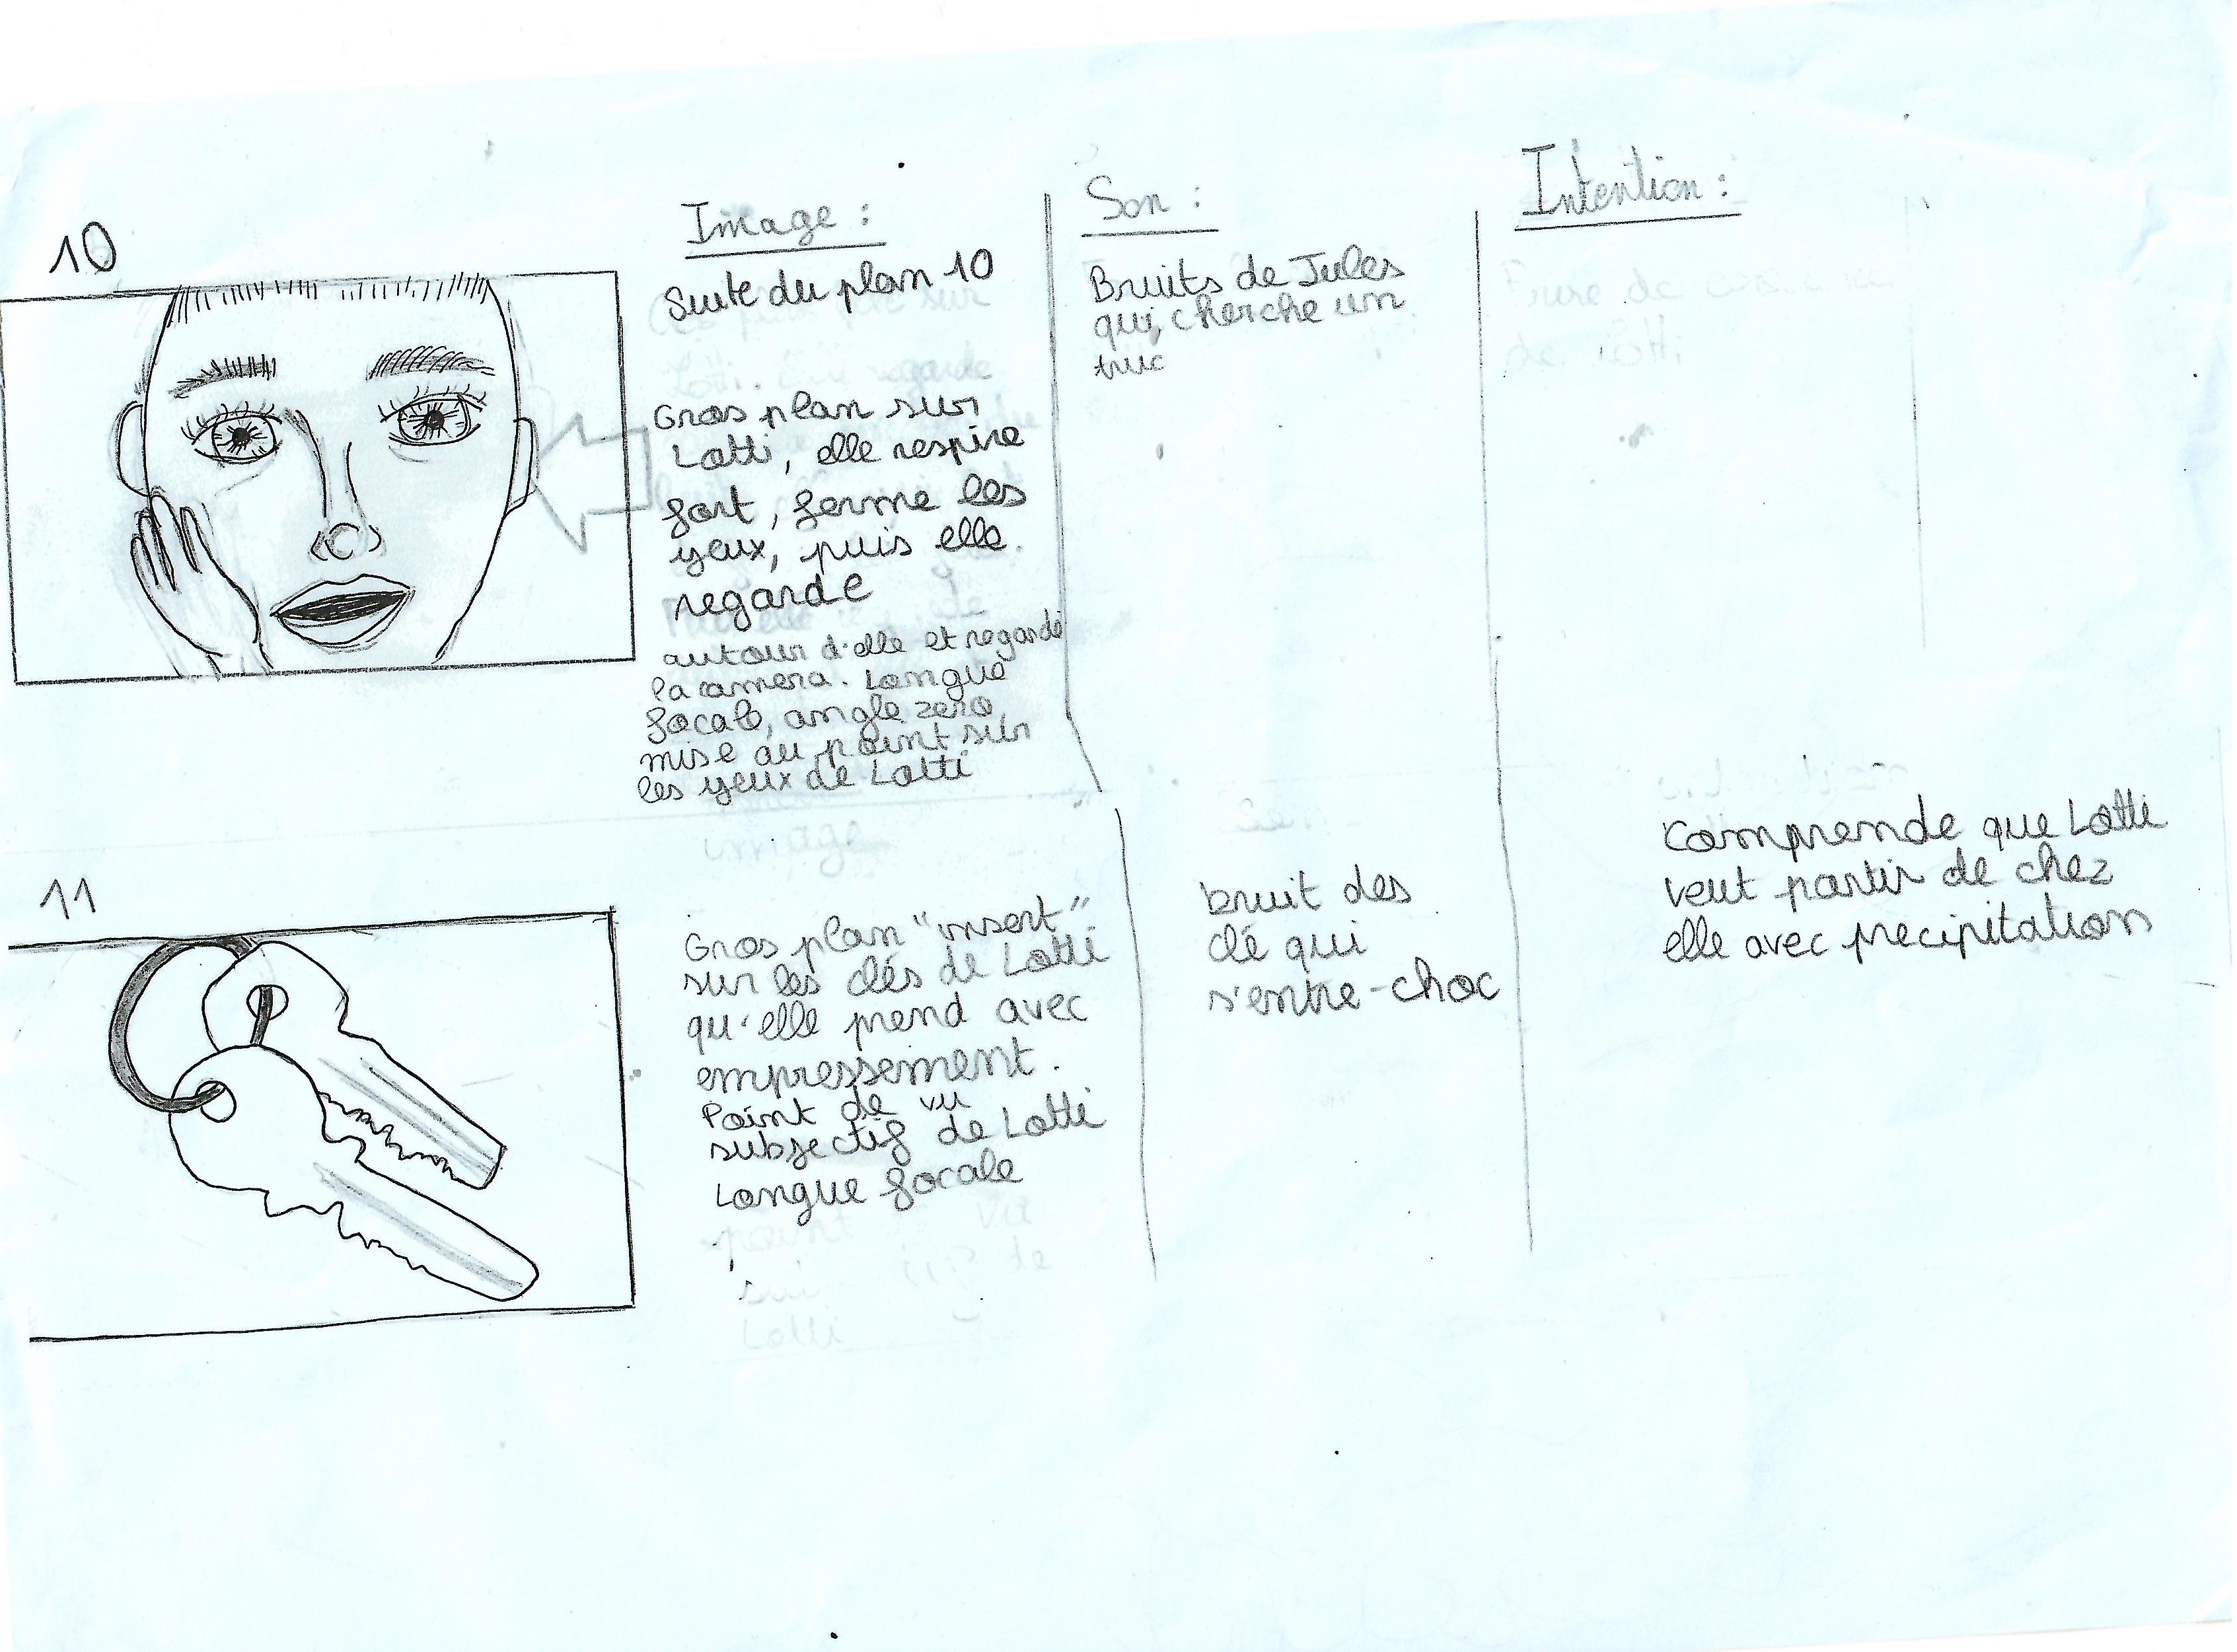 10
Image :
Suite du plan 10
Gros plan sur
Lotti, elle respire
fort, ferme les
yeux, puis elle
regarde
autour d'elle et regarde
la camera. Longue
focale, angle zero,
mise au point sur
les yeux de Lotti
Son :
Bruits de Jules
qui cherche un
truc
Intention :
11
Gros plan "insert"
sur les clés de Lotti
qu'elle prend avec
empressement.
Point de vu
subjectif de Lotti
Longue focale
bruit des
clé qui
s'entre-choc
Comprende que Lotti
veut partir de chez
elle avec precipitation